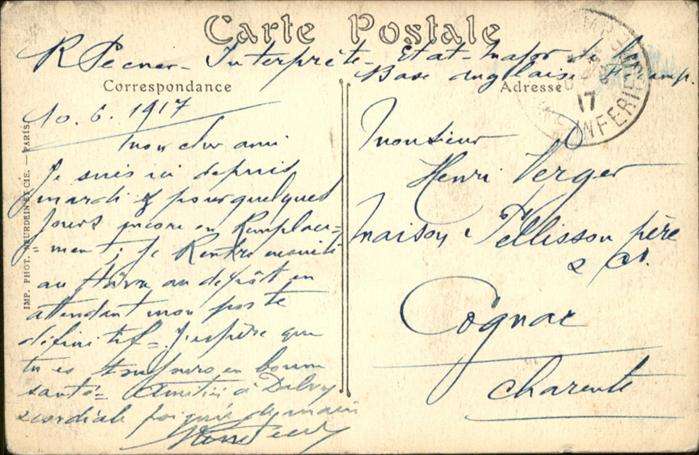 Carte Postale
R Pecner - Interprète - Etat-Major de la
Base anglaise Fécamp.
Correspondance
Adresse
10.6.1917
Mon cher ami
Je suis ici depuis
mardi & pour quelques
jours encore en Remplace-
ment; je Rentre ensuite
au Havre au dépôt en
attendant mon poste
définitif - J'espère que
tu es toujours en bonne
santé - Amitiés à
& cordiale poignée de main
Monsieur
Henri Verger
Maison Pellisson père
& Cie.
Cognac
Charente
17
INFERIE
IMP. PHOT. NEURDEIN ET CIE. — PARIS